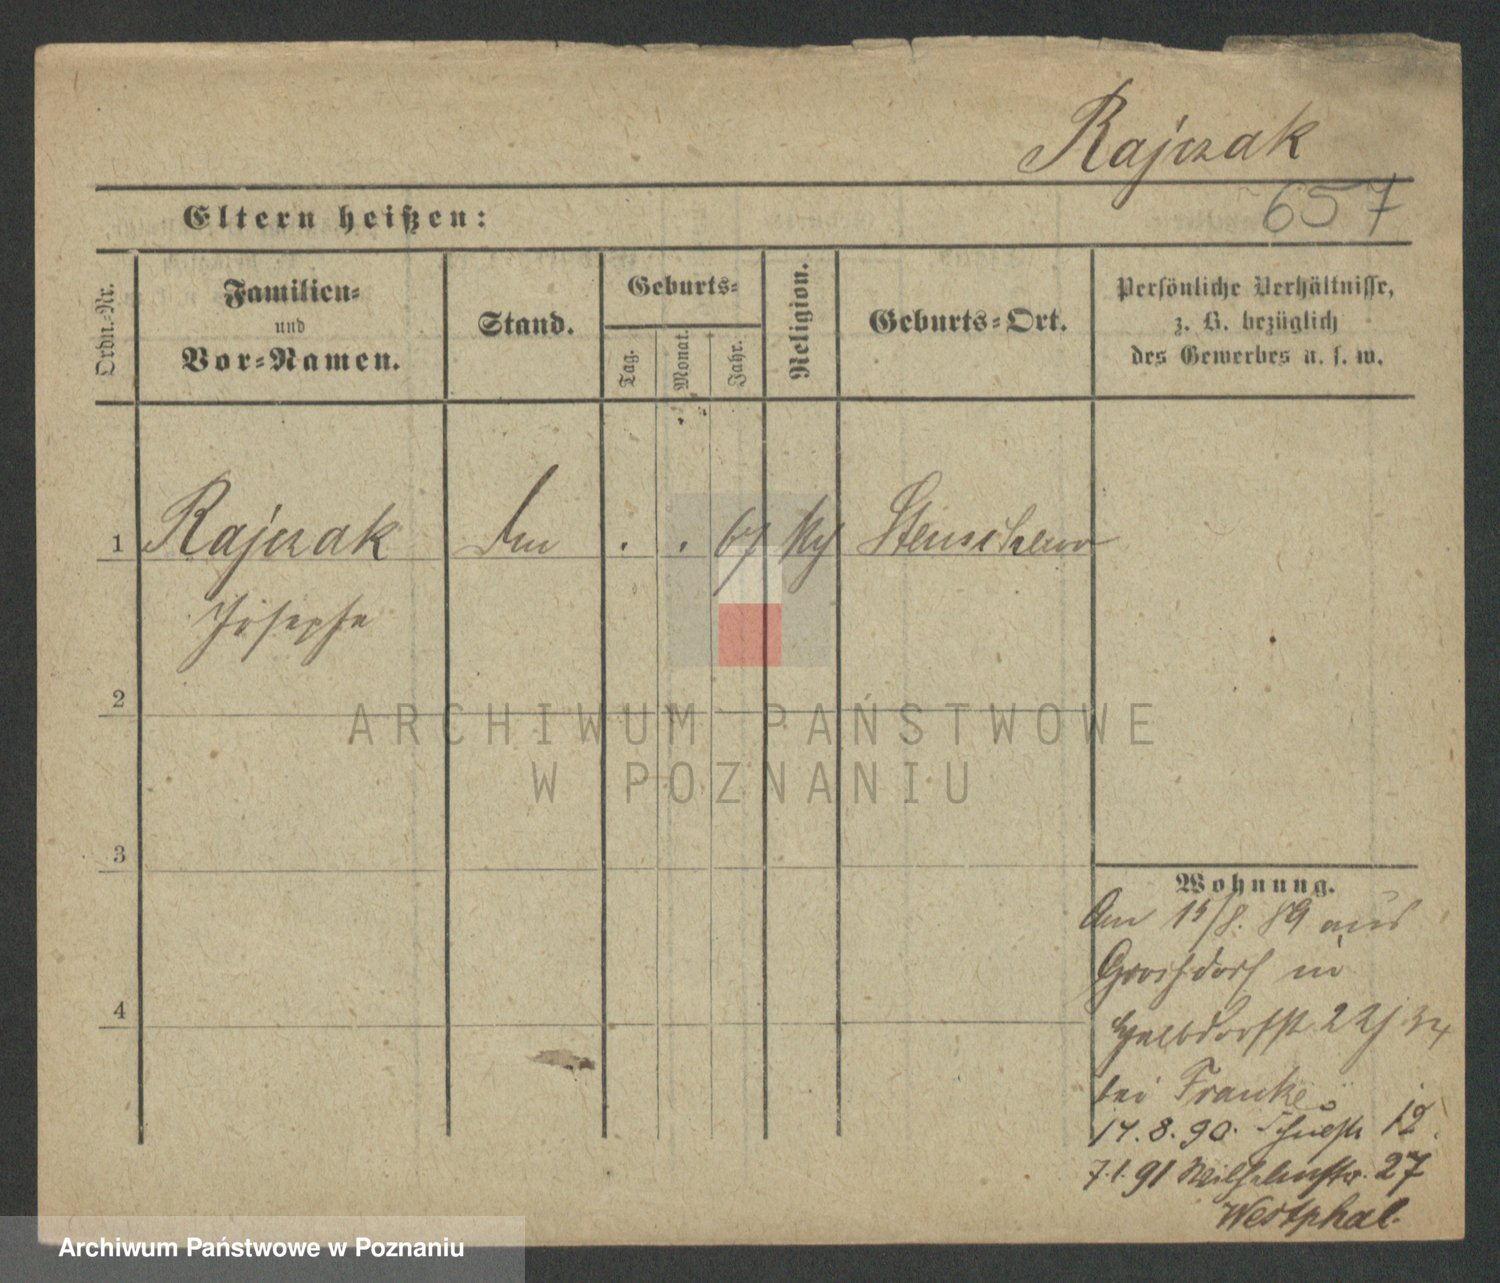 Rajczak
657
Eltern heißen:
Ordn.-Nr.
Familien-
und
Vor-Namen.
Stand.
Geburts-
Tag.
Monat.
Jahr.
Religion.
Geburts-Ort.
Persönliche Verhältnisse,
z. B. bezüglich
des Gewerbes u. s. w.
1 Rajczak . . 67
Josepha
2
ARCHIWUM PAŃSTWOWE
W POZNANIU
3
Wohnung.
Am 15/8. 89 aus
in
4
Halbdorfstr 22
bei Franke
17.8.90. 12.
7.1.91 Wilhelmstr. 27
Westphal.
Archiwum Państwowe w Poznaniu